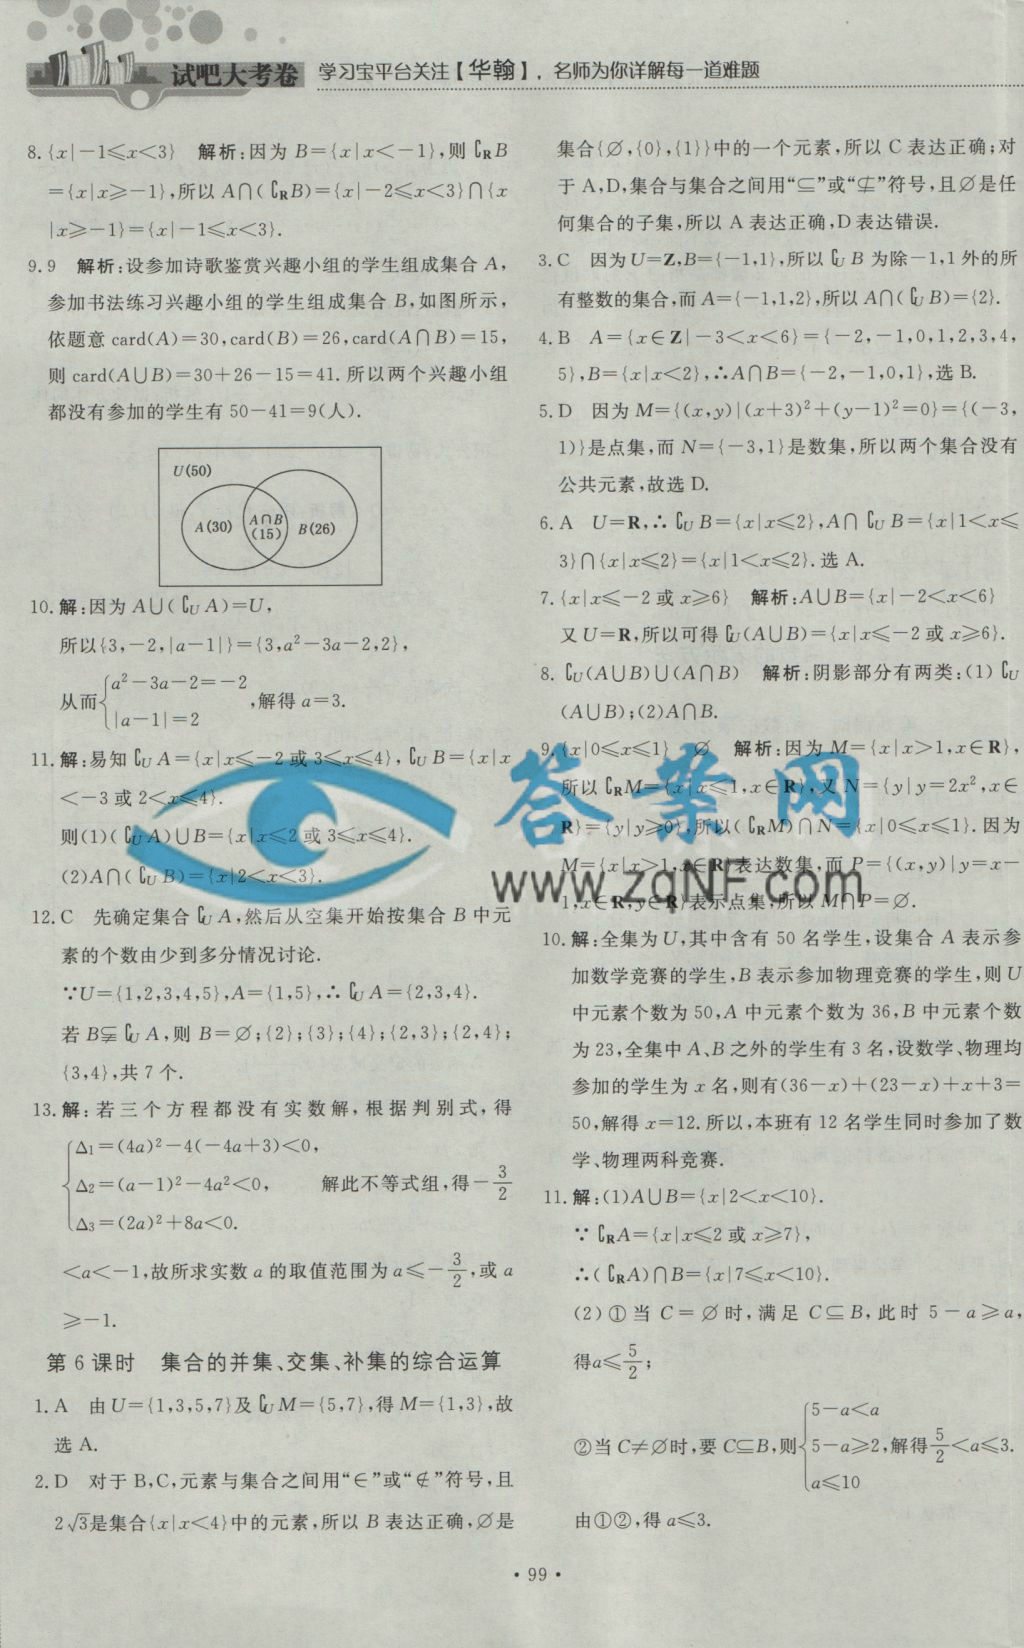 试吧大考卷 学习宝平台关注【华翰】，名师为你详解每一道难题
8.{x|-1≤x<3} 解析:因为 B={x|x<-1},则∁RB
={x|x≥-1},所以 A∩(∁RB)={x|-2≤x<3}∩{x
|x≥-1}={x|-1≤x<3}.
9.9 解析:设参加诗歌鉴赏兴趣小组的学生组成集合 A,
参加书法练习兴趣小组的学生组成集合 B,如图所示,
依题意 card(A)=30,card(B)=26,card(A∩B)=15,
则 card(A∪B)=30+26-15=41.所以两个兴趣小组
都没有参加的学生有 50-41=9(人).
U(50)
A(30) A∩B (15) B(26)
10.解:因为 A∪(∁UA)=U,
所以{3,-2,|a-1|}={3,a²-3a-2,2},
从而{a²-3a-2=-2
|a-1|=2 ,解得 a=3.
11.解:易知∁UA={x|x≤-2 或 3≤x≤4},∁UB={x|x
<-3 或 2<x≤4}.
则(1)(∁UA)∪B={x|x≤2 或 3≤x≤4}.
(2)A∩(∁UB)={x|2<x<3}.
12.C 先确定集合∁UA,然后从空集开始按集合 B 中元
素的个数由少到多分情况讨论.
∵U={1,2,3,4,5},A={1,5},∴∁UA={2,3,4}.
若 B⫋∁UA,则 B=∅;{2};{3};{4};{2,3};{2,4};
{3,4},共 7 个.
13.解:若三个方程都没有实数解,根据判别式,得
{Δ1=(4a)²-4(-4a+3)<0,
Δ2=(a-1)²-4a²<0, 解此不等式组,得-3/2
Δ3=(2a)²+8a<0.
<a<-1,故所求实数 a 的取值范围为 a≤-3/2,或 a
≥-1.
第 6 课时 集合的并集、交集、补集的综合运算
1.A 由 U={1,3,5,7}及∁UM={5,7},得 M={1,3},故
选 A.
2.D 对于 B,C,元素与集合之间用“∈”或“∉”符号,且
2√3是集合{x|x<4}中的元素,所以 B 表达正确,∅是
集合{∅,{0},{1}}中的一个元素,所以 C 表达正确;对
于 A,D,集合与集合之间用“⊆”或“⊈”符号,且∅是任
何集合的子集,所以 A 表达正确,D 表达错误.
3.C 因为 U=Z,B={-1,1},所以∁UB 为除-1,1 外的所
有整数的集合,而 A={-1,1,2},所以 A∩(∁UB)={2}.
4.B A={x∈Z|-3<x<6}={-2,-1,0,1,2,3,4,
5},B={x|x<2},∴A∩B={-2,-1,0,1},选 B.
5.D 因为 M={(x,y)|(x+3)²+(y-1)²=0}={(-3,
1)}是点集,而 N={-3,1}是数集,所以两个集合没有
公共元素,故选 D.
6.A U=R,∴∁UB={x|x≤2},A∩∁UB={x|1<x≤
3}∩{x|x≤2}={x|1<x≤2}.选 A.
7.{x|x≤-2 或 x≥6} 解析:A∪B={x|-2<x<6}
又 U=R,所以可得∁U(A∪B)={x|x≤-2 或 x≥6}.
8.∁U(A∪B)∪(A∩B) 解析:阴影部分有两类:(1)∁U
(A∪B);(2)A∩B.
9.{x|0≤x≤1} ∅ 解析:因为 M={x|x>1,x∈R},
所以∁RM={x|x≤1,x∈R},又 N={y|y=2x²,x∈
R}={y|y≥0},所以(∁RM)∩N={x|0≤x≤1}.因为
M={x|x>1,x∈R}表达数集,而 P={(x,y)|y=x-
1,x∈R,y∈R}表示点集,所以 M∩P=∅.
10.解:全集为 U,其中含有 50 名学生,设集合 A 表示参
加数学竞赛的学生,B 表示参加物理竞赛的学生,则 U
中元素个数为 50,A 中元素个数为 36,B 中元素个数
为 23,全集中 A、B 之外的学生有 3 名,设数学、物理均
参加的学生为 x 名,则有(36-x)+(23-x)+x+3=
50,解得 x=12.所以,本班有 12 名学生同时参加了数
学、物理两科竞赛.
11.解:(1)A∪B={x|2<x<10}.
∵∁RA={x|x≤2 或 x≥7},
∴(∁RA)∩B={x|7≤x<10}.
(2)①当 C=∅时,满足 C⊆B,此时 5-a≥a,
得a≤5/2;
②当 C≠∅时,要 C⊆B,则{5-a<a
5-a≥2,解得5/2<a≤3.
a≤10
由①②,得 a≤3.
答案网
www.zqNF.com
• 99 •